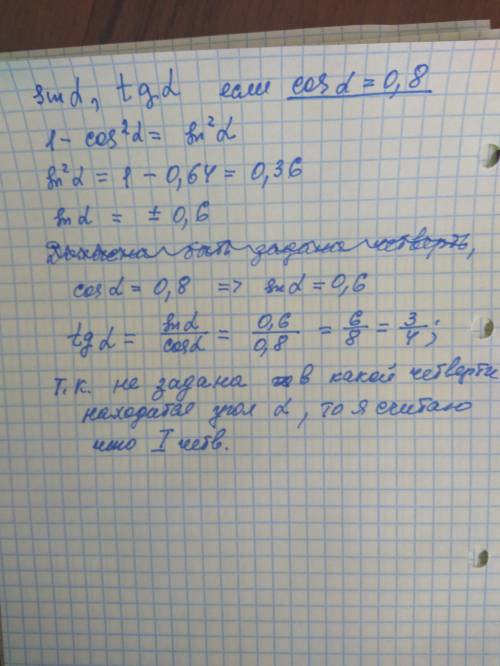 sin α, tg α если cos α = 0,8
1 - cos²α = sin²α
sin²α = 1 - 0,64 = 0,36
sin α = ± 0,6
Должна быть задана четверть,
cos α = 0,8 => sin α = 0,6
tg α = sin α / cos α = 0,6 / 0,8 = 6/8 = 3/4 ;
Т.к. не задана в какой четверти
находится угол α, то я считаю
что I четв.